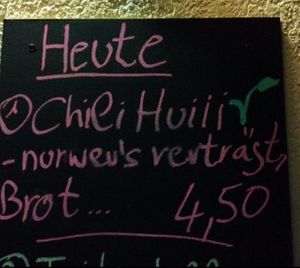 Heute
① Chili Huiiii
-nur wen's verträgt,
Brot... 4,50